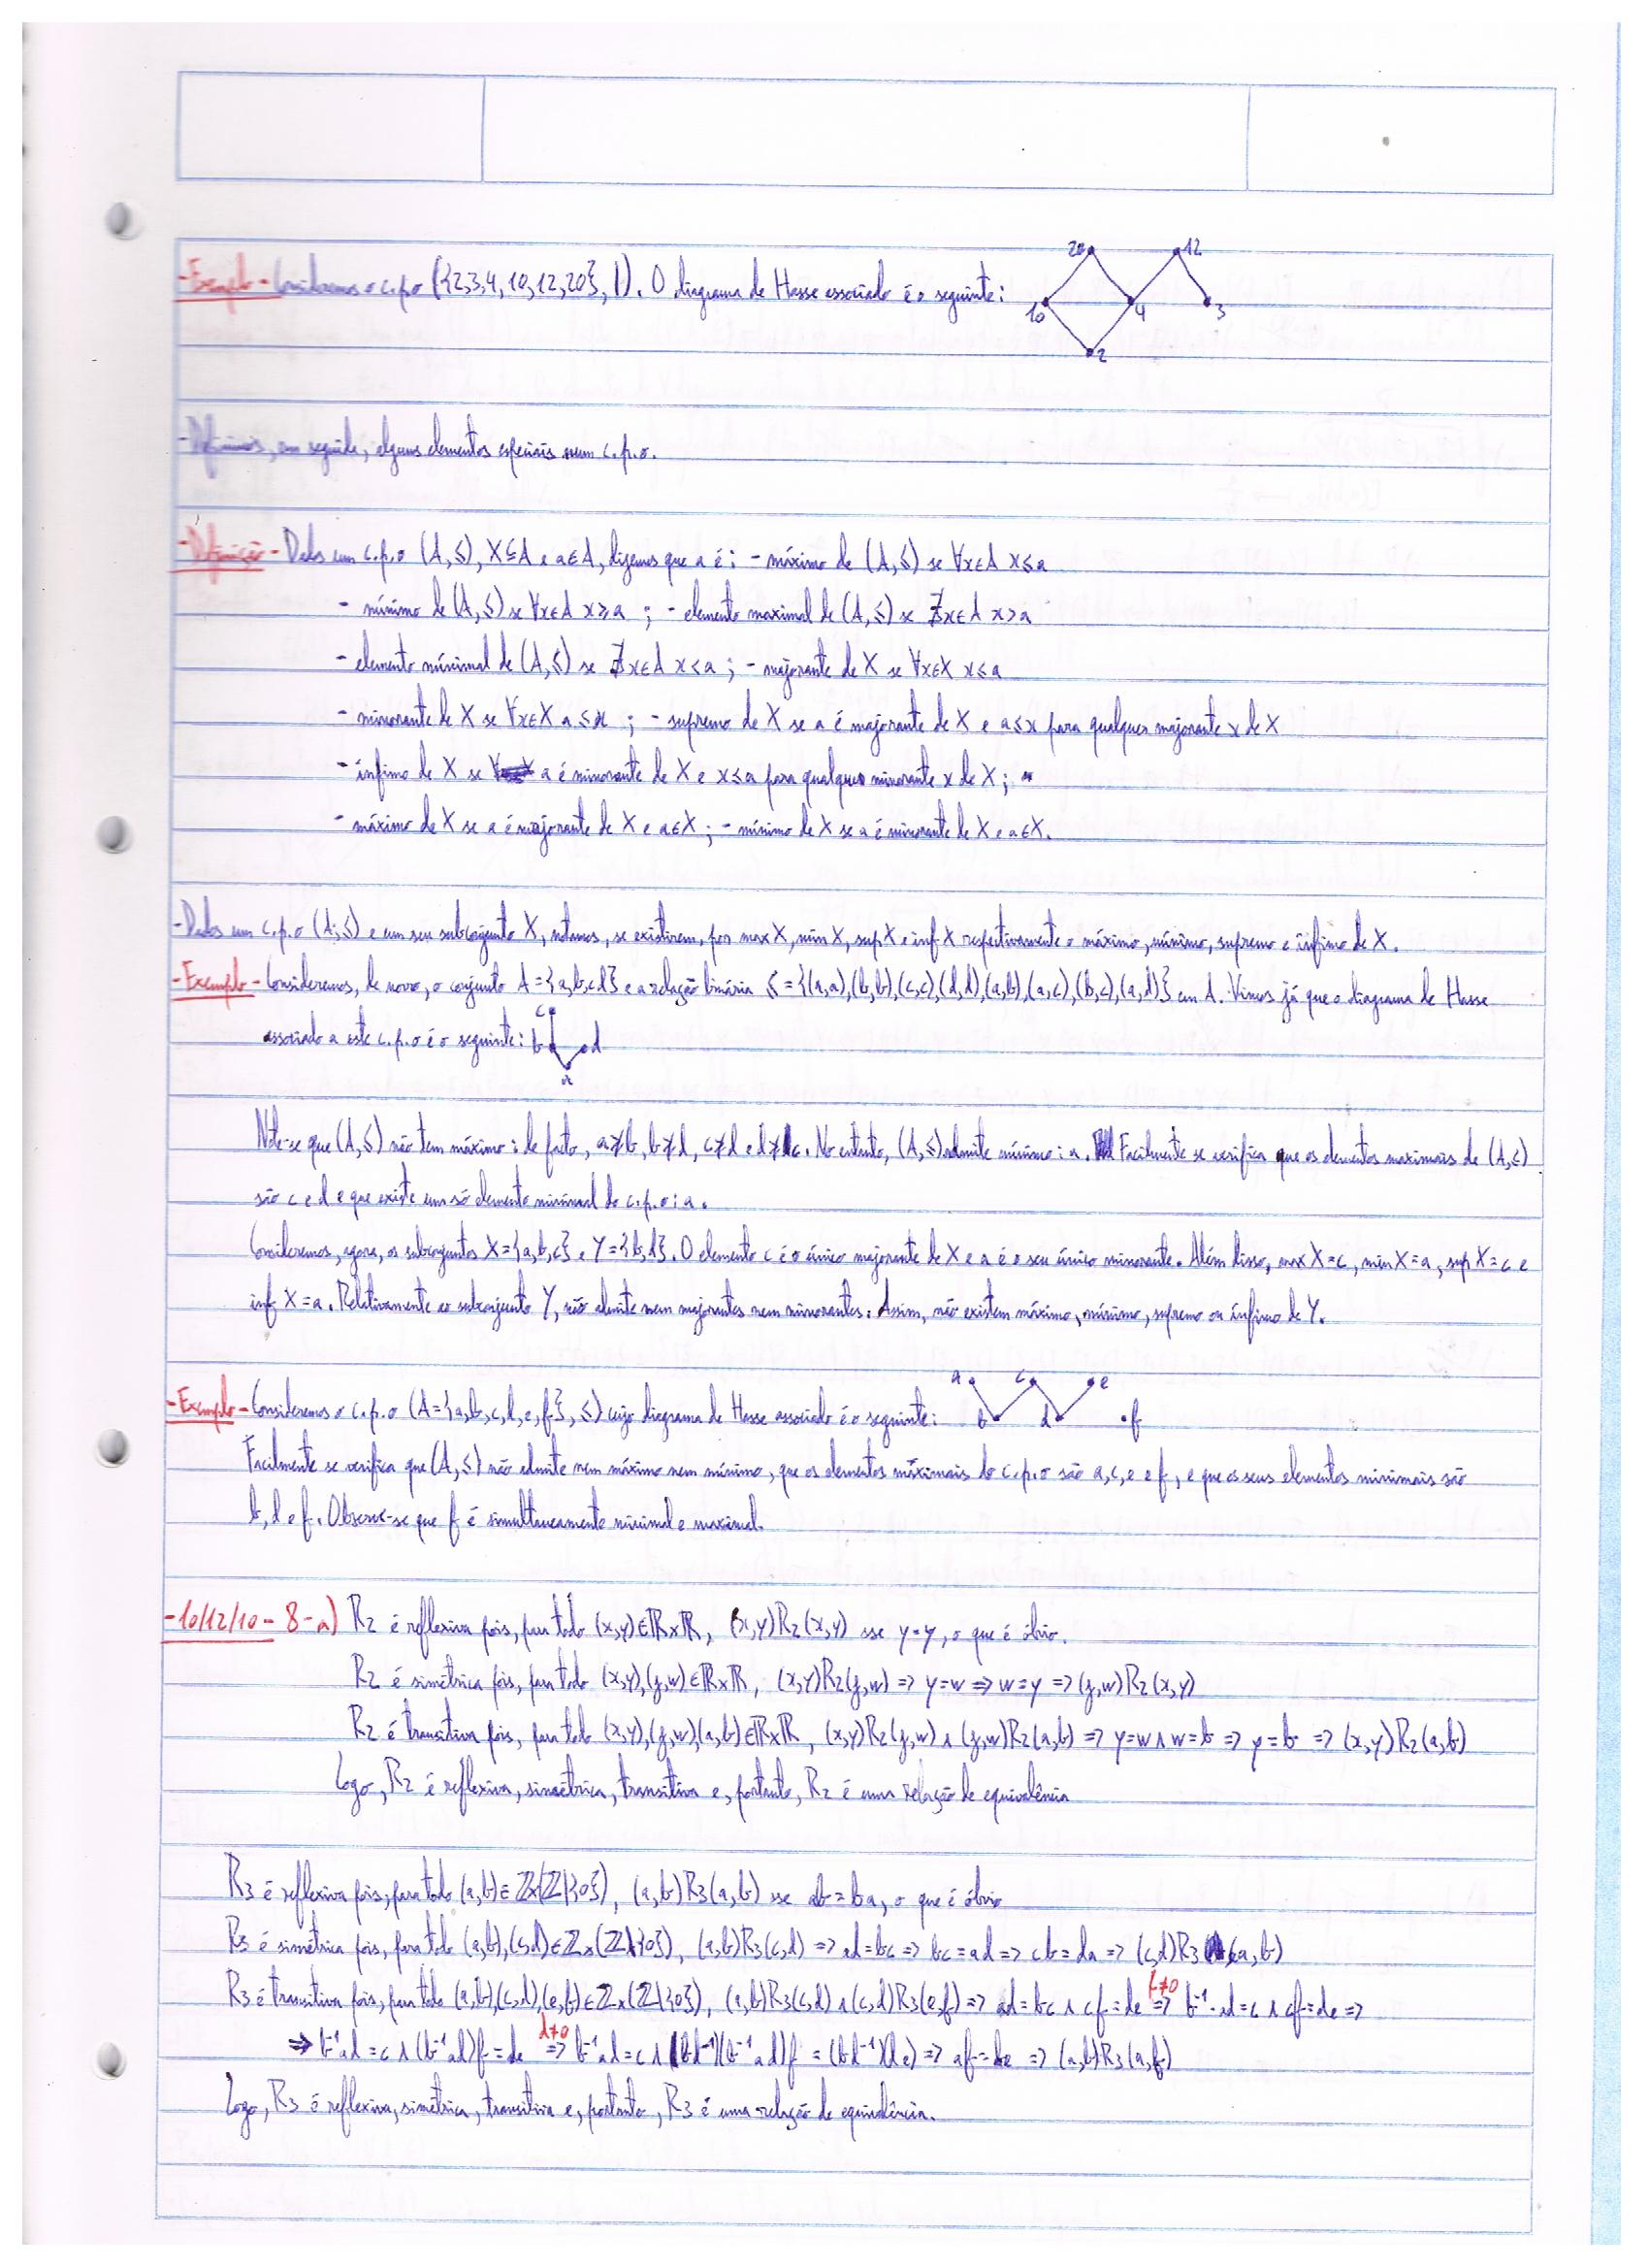 20 12
-Exemplo- Consideremos o c.p.o ({2,3,4,10,12,20}, |). O diagrama de Hasse associado é o seguinte:
10 4 3
2
-Definimos, em seguida, alguns elementos especiais num c.p.o.
-Definição- Dados um c.p.o (A,≤), X⊆A e a∈A, dizemos que a é: - máximo de (A,≤) se ∀x∈A x≤a
- mínimo de (A,≤) se ∀x∈A x≥a ; - elemento maximal de (A,≤) se ∄x∈A x>a
- elemento mínimal de (A,≤) se ∄x∈A x<a ; - majorante de X se ∀x∈X x≤a
- minorante de X se ∀x∈X a≤x ; - supremo de X se a é majorante de X e a≤x para qualquer majorante x de X
- ínfimo de X se a é minorante de X e x≤a para qualquer minorante x de X;
- máximo de X se a é majorante de X e a∈X ; - mínimo de X se a é minorante de X e a∈X.
-Dados um c.p.o (A,≤) e um seu subconjunto X, notamos, se existirem, por max X, min X, sup X e inf X respetivamente o máximo, mínimo, supremo e ínfimo de X.
-Exemplo- Consideremos, de novo, o conjunto A={a,b,c,d} e a relação binária ≤={(a,a),(b,b),(c,c),(d,d),(a,b),(a,c),(b,c),(a,d)} em A. Vimos já que o diagrama de Hasse
associado a este c.p.o é o seguinte: c b d a
Note-se que (A,≤) não tem máximo: de facto, a≱b, b≱d, c≱d e d≱c. No entanto, (A,≤) admite mínimo: a. Facilmente se verifica que os elementos maximais de (A,≤)
são c e d e que existe um só elemento minimal do c.p.o: a.
Consideremos, agora, os subconjuntos X={a,b,c} e Y={b,d}. O elemento c é o único majorante de X e a é o seu único minorante. Além disso, max X=c, min X=a, sup X=c e
inf X=a. Relativamente ao subconjunto Y, não admite nem majorantes nem minorantes. Assim, não existem máximo, mínimo, supremo ou ínfimo de Y.
a c e
-Exemplo- Consideremos o c.p.o (A={a,b,c,d,e,f}, ≤) cujo diagrama de Hasse associado é o seguinte: b d f
Facilmente se verifica que (A,≤) não admite nem máximo nem mínimo, que os elementos máximais do c.p.o são a,c,e e f, e que os seus elementos minimais são
b, d e f. Observe-se que f é simultaneamente minimal e maximal.
-10/12/10- 8-a) R2 é reflexiva pois, para todo (x,y)∈ℝxℝ, (x,y)R2(x,y) sse y=y, o que é óbvio.
R2 é simétrica pois, para todo (x,y),(z,w)∈ℝxℝ, (x,y)R2(z,w) => y=w => w=y => (z,w)R2(x,y)
R2 é transitiva pois, para todo (x,y),(z,w),(a,b)∈ℝxℝ, (x,y)R2(z,w) ∧ (z,w)R2(a,b) => y=w ∧ w=b => y=b => (x,y)R2(a,b)
Logo, R2 é reflexiva, simétrica, transitiva e, portanto, R2 é uma relação de equivalência
R3 é reflexiva pois, para todo (a,b)∈ℤx(ℤ\{0}), (a,b)R3(a,b) sse ab=ba, o que é óbvio
R3 é simétrica pois, para todo (a,b),(c,d)∈ℤx(ℤ\{0}), (a,b)R3(c,d) => ad=bc => bc=ad => cb=da => (c,d)R3(a,b)
R3 é transitiva pois, para todo (a,b),(c,d),(e,f)∈ℤx(ℤ\{0}), (a,b)R3(c,d) ∧ (c,d)R3(e,f) => ad=bc ∧ cf=de b≠0 => b⁻¹ad=c ∧ cf=de =>
=> b⁻¹ad=c ∧ (b⁻¹ad)f=de d≠0 => b⁻¹ad=c ∧ (bd⁻¹)(b⁻¹ad)f=(bd⁻¹)(de) => af=be => (a,b)R3(e,f)
Logo, R3 é reflexiva, simétrica, transitiva e, portanto, R3 é uma relação de equivalência.